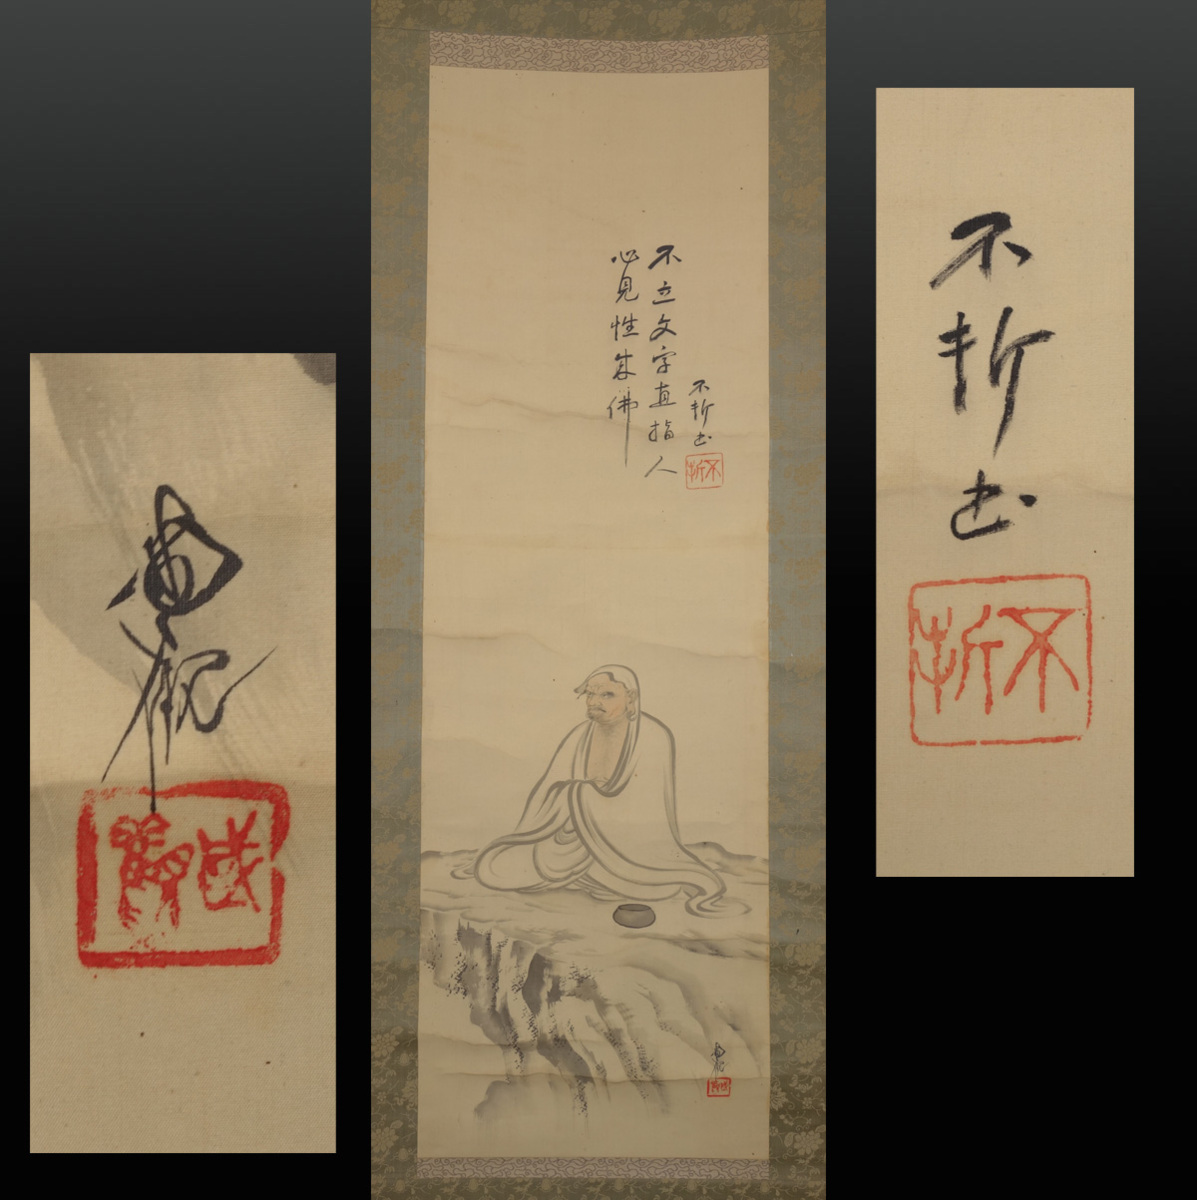 不立文字直指人
心見性成佛
不折書
不折
不折書
不折